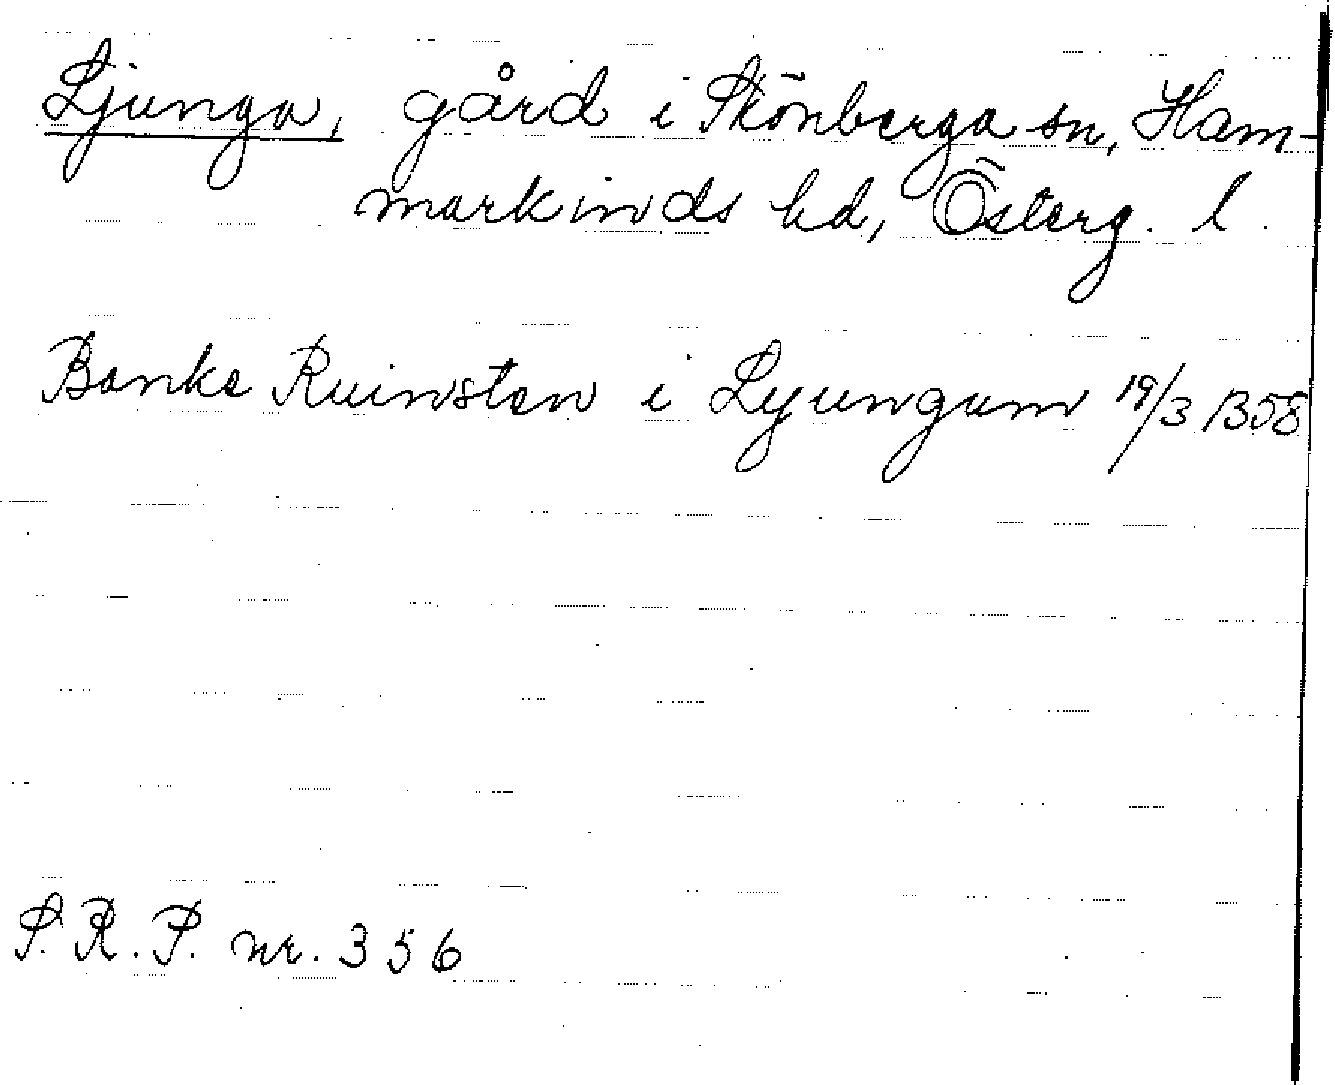 Ljunga, gård i Skönberga sn, Ham-
markinds hd, Österg. l.
Banke Ruinsten i Lyungum 19/3 1358
S. R. P. nr. 356